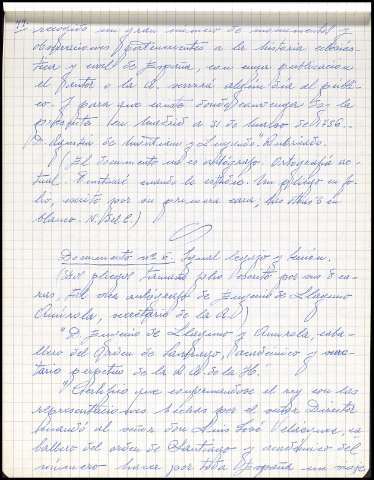 14.
recogido un gran número de monumentos y
observaciones pertenecientes a la historia eclesiás-
tica y civil de España, con cuya publicación
el Autor o la A. servirá algún día al públi-
co. Y para que conste donde convenga doy la
presente en Madrid a 31 de Marzo de 1756.
D. Agustín de Montiano y Luyando" Rubricado.
(El documento no es autógrafo. Ortografía ac-
tual. Puntual cuando lo estudio. Un pliego en fo-
lio, escrito por su primera cara, las otras 3 en
blanco. N. del C.)
Documento nº 6. Igual legajo y sección.
(Dos pliegos tamaño folio escrito por sus 8 ca-
ras, letra autógrafo de Eugenio de Llaguno
Amirola, secretario de la A.)
"D. Eugenio de Llaguno y Amirola, caba-
llero del Orden de Santiago, Académico y secre-
tario perpetuo de la R. A. de la H.ª
"Certifico que conformándose el rey con las
representaciones hechas por el señor Director
comandó al señor don Luis José Velázquez, ca-
ballero del orden de Santiago y académico del
número hacer por toda España un viaje